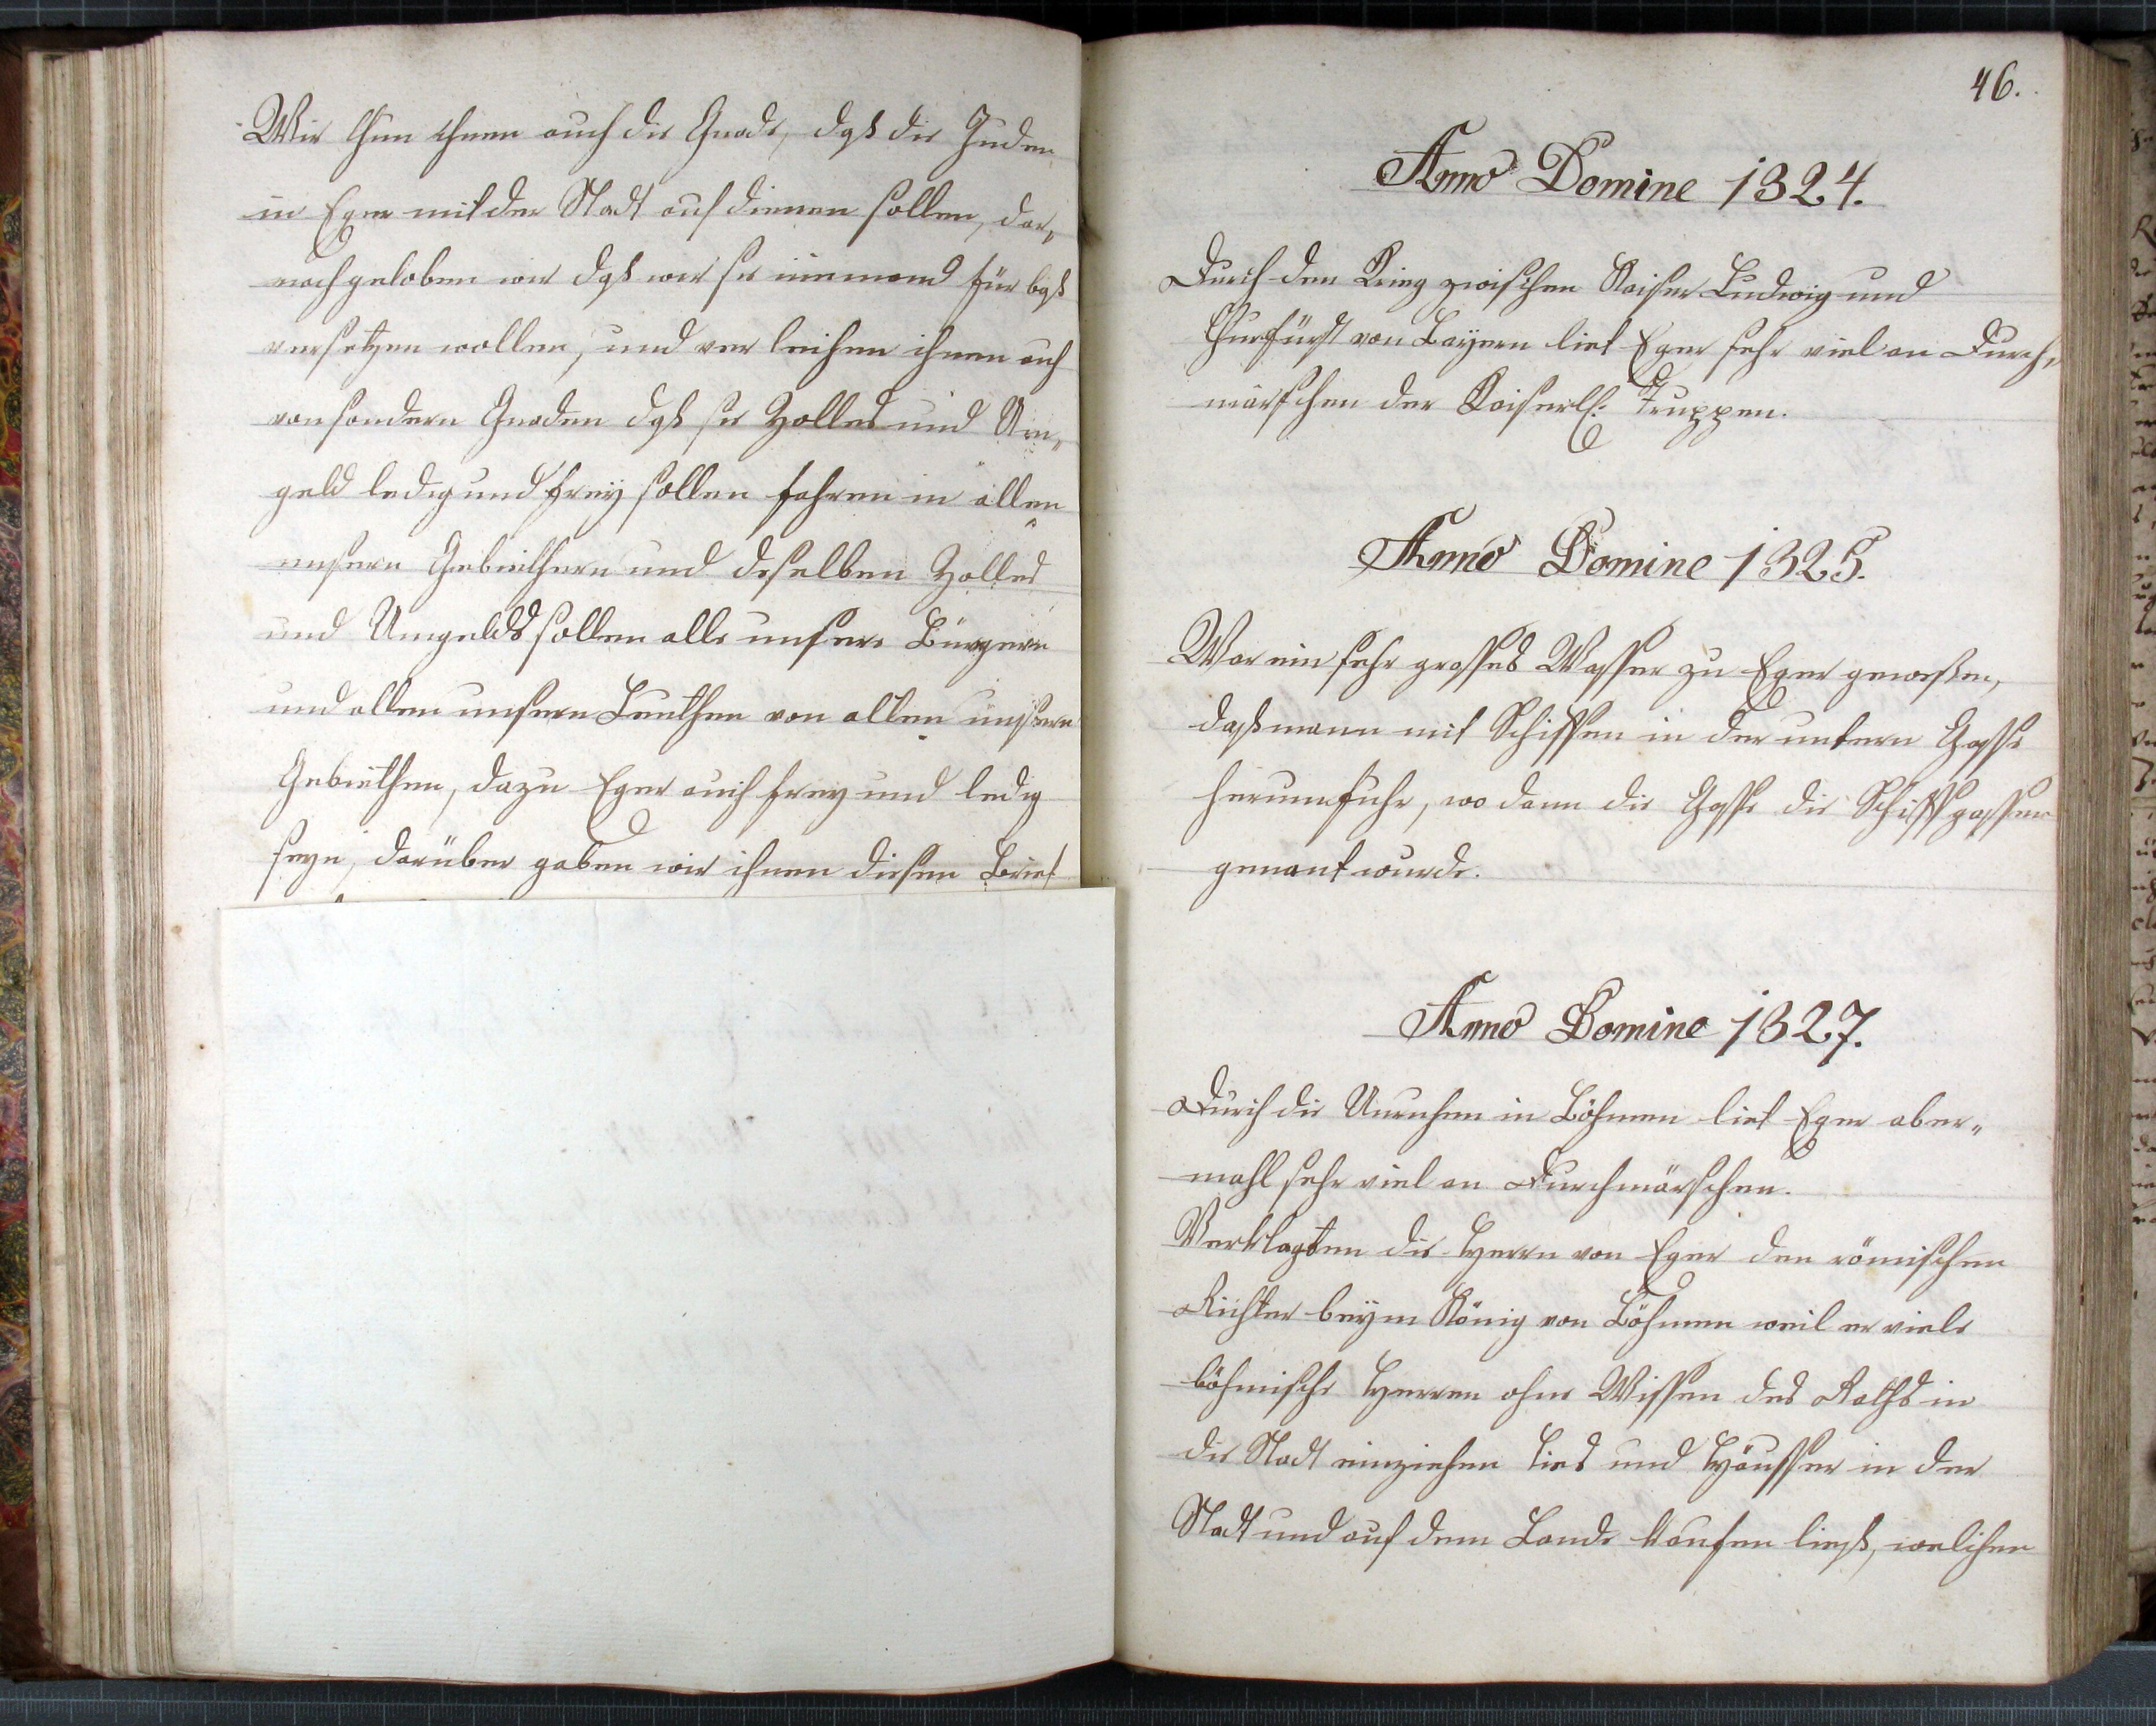 Wir thun ihnen auch die Gnade, daß die Juden
in Eger mit der Stadt auf dienen sollen, dar„
nach geloben wir daß wir sie niemand für bas
versetzen wollen, und verleihen ihnen auch
von sondern Gnaden daß sie Zolles und Um„
geld ledig und frey sollen fahren in allen
unsern Gebiethern und deselben Zolles
und Umgelds sollen alle unsere Bürgern
und allen unsern Leuthen von allen unsern
Gebiethen, dazu Eger auch frey und ledig
seyn, darüber gaben wir ihnen diesen Brief
46.
Anno Domine 1324.
Durch den Krieg zwischen Kaiser Ludwig und
Churfürst von Bayern liet Eger sehr viel an Durch„
märschen der Kaiserl: Truppen.
Anno Domine 1325.
War ein sehr grosses Wasser zu Eger geweßen,
daß mann mit Schiffen in der untern Gasse
herumfuhr, wo dann die Gasse die Schiffgassen
genant wurde.
Anno Domine 1327.
Durch die Unruhen in Böhmen liet Eger aber„
mahl sehr viel an Durchmärschen.
Verklagten die Herrn von Eger den römischen
Richter beym König von Böhmen weil er viele
böhmische Herren ohne Wissen des Raths in
die Stadt einziehen lies und Häusser in der
Stadt und auf dem Lande kaufen ließ, welchen